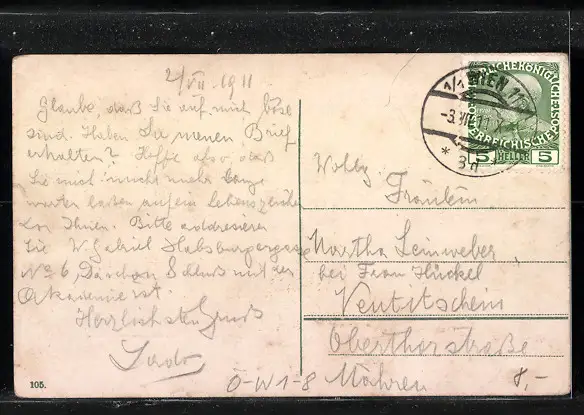 2/VII 1911
Glaube, daß Sie auf mich böse
sind. Haben Sie meinen Brief
erhalten? Hoffe also, daß
Sie mich nicht mehr lange
warten lassen auf ein Lebenszeichen
von Ihnen. Bitte addresieren
Sie W. Gabriel Habsburgergasse
No 6, Schluß mit der
Akademie ist.
Herzlichsten Gruß
105.
WIEN
-3.VII.11
5 HELLER 5
Wohlg.
Fräulein
Martha Leinweber
bei Frau Hückel
Neutitschein
Oberthorstraße
Mähren
Ö-W1-8
8,-